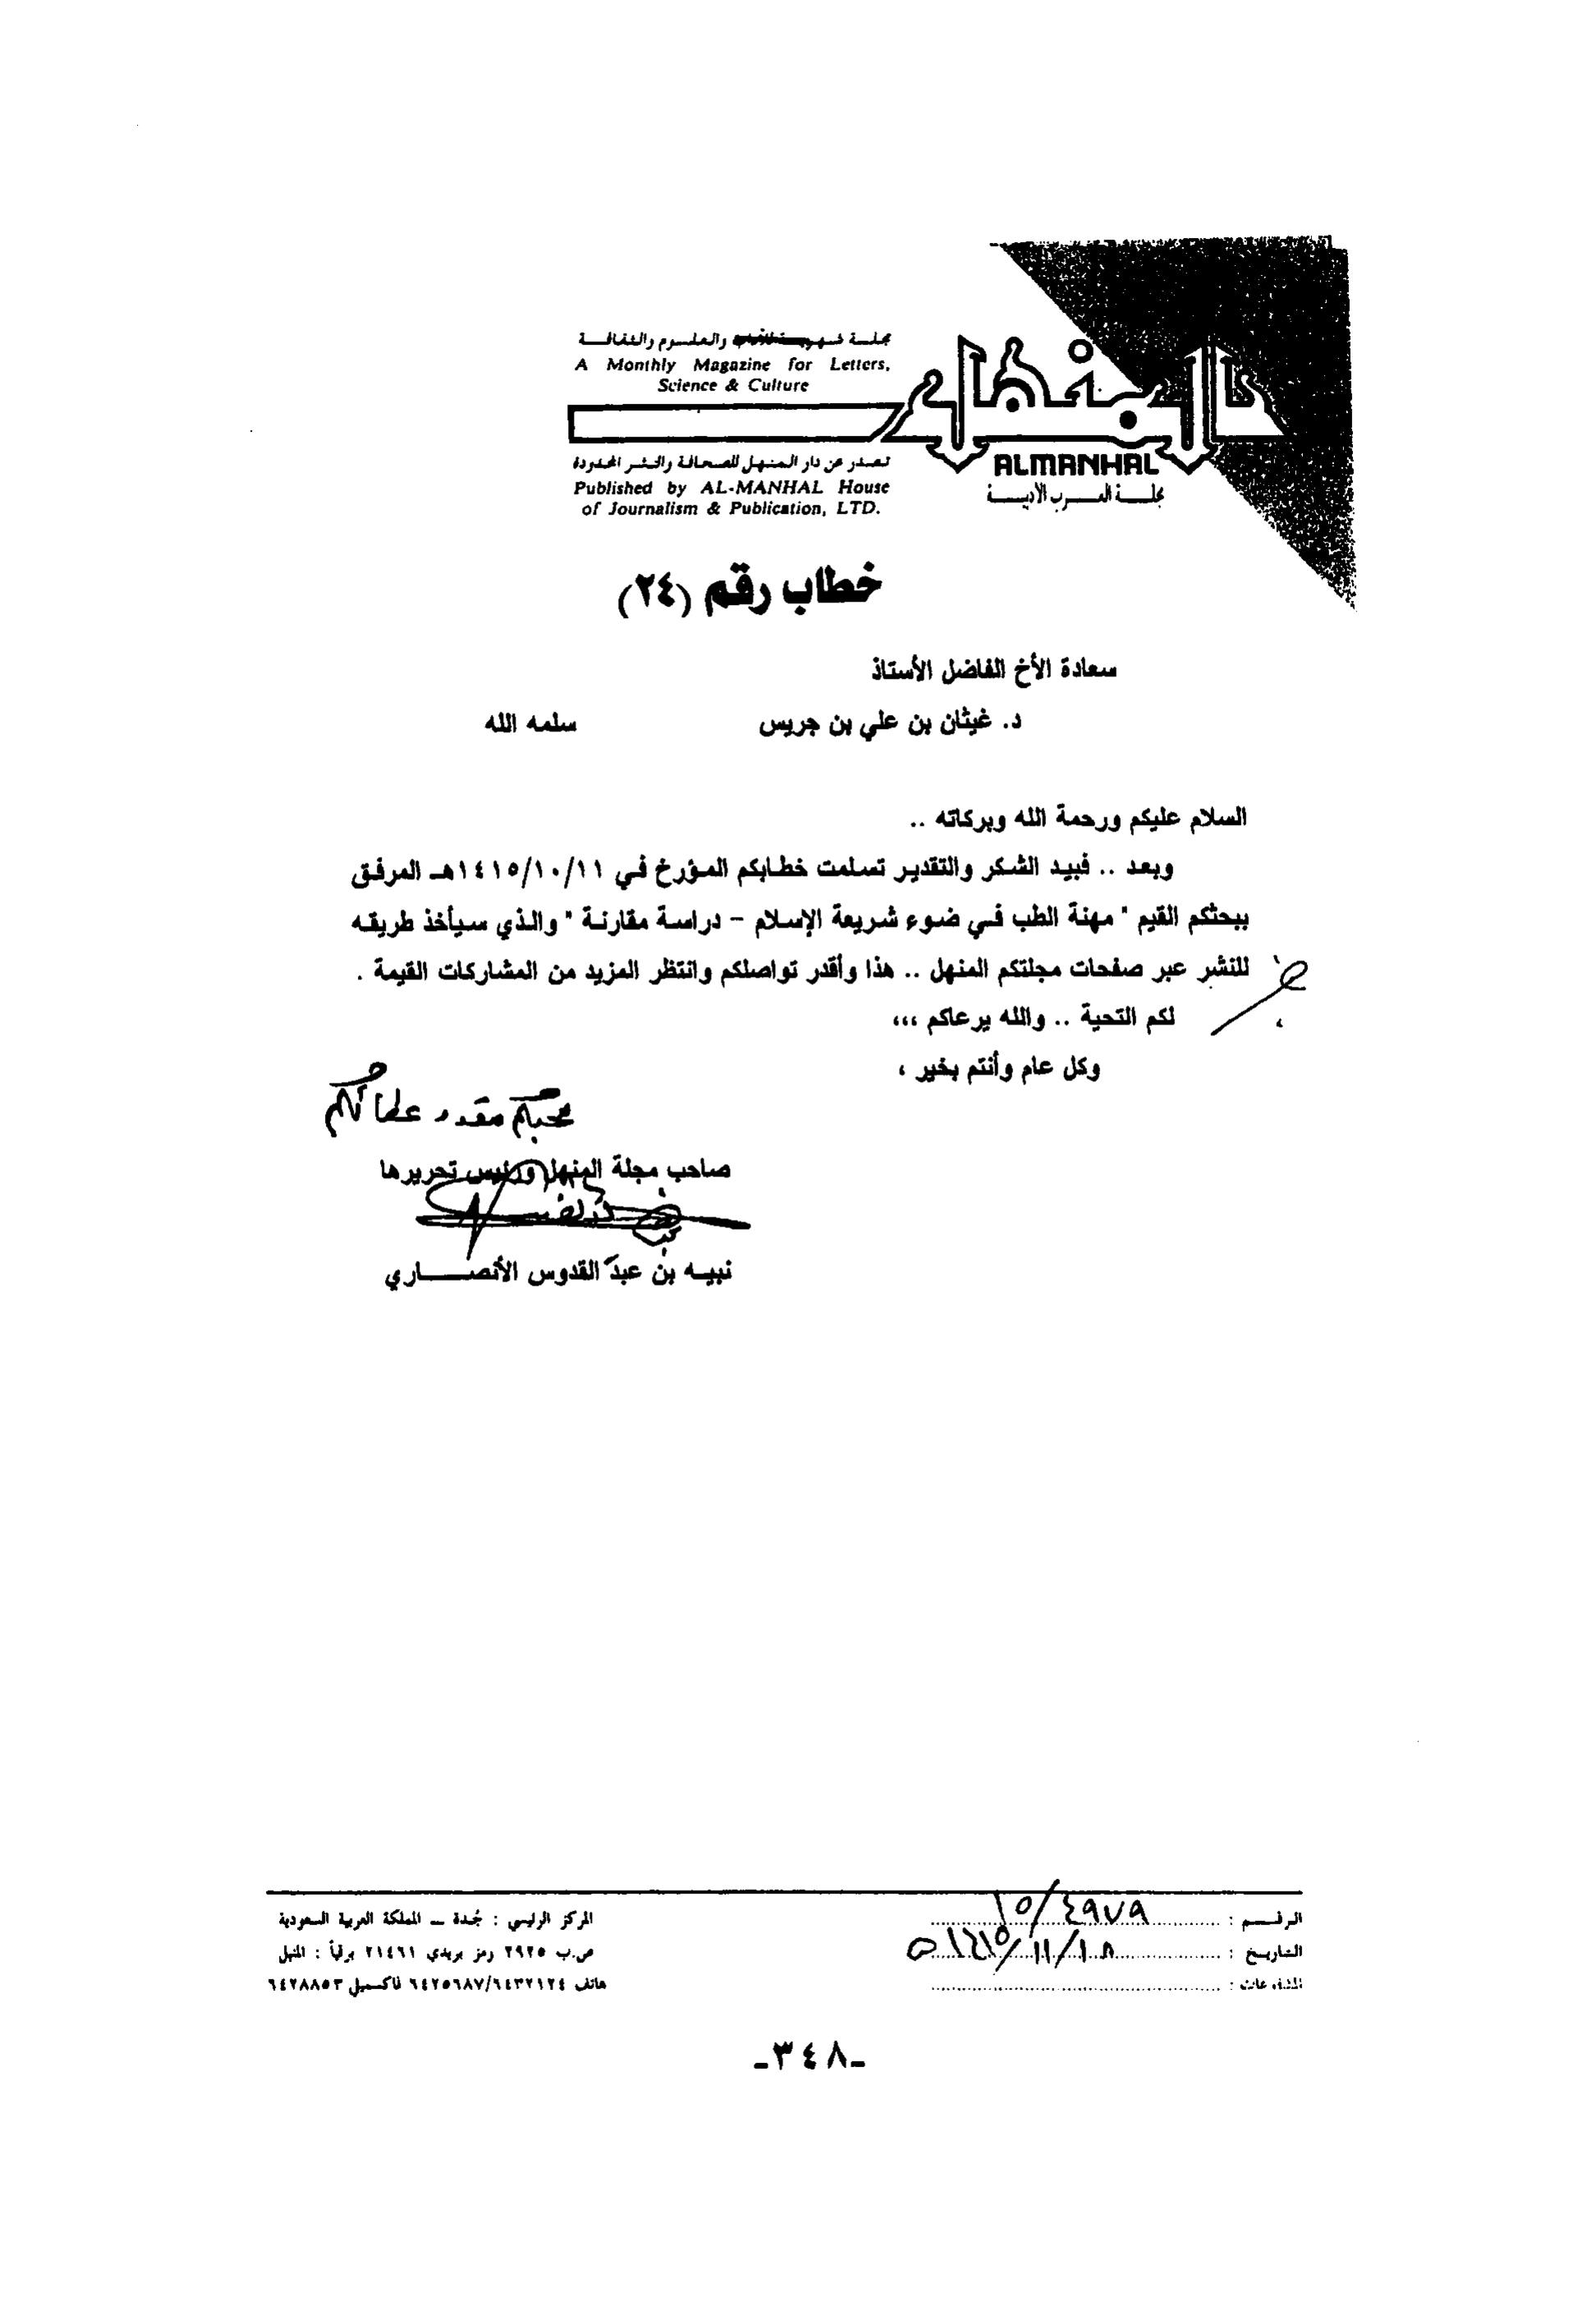 مجلة شهرية للآداب والعلوم والثقافة
A Monthly Magazine for Letters,
Science & Culture
المنهل
ALMANHAL
مجلة العرب الأدبية
تصدر عن دار المنهل للصحافة والنشر المحدودة
Published by AL-MANHAL House
of Journalism & Publication, LTD.
خطاب رقم (٢٤)
سعادة الأخ الفاضل الأستاذ
د. غيثان بن علي بن جريس سلمه الله
السلام عليكم ورحمة الله وبركاته ..
وبعد .. فبيد الشكر والتقدير تسلمت خطابكم المؤرخ في ١٤١٥/١٠/١١هـ المرفق
ببحثكم القيم " مهنة الطب في ضوء شريعة الإسلام - دراسة مقارنة " والذي سيأخذ طريقه
للنشر عبر صفحات مجلتكم المنهل .. هذا وأقدر تواصلكم وانتظر المزيد من المشاركات القيمة .
لكم التحية .. والله يرعاكم ،،،
وكل عام وأنتم بخير ،
محبكم مقدر عطائكم
صاحب مجلة المنهل ورئيس تحريرها
نبيه بن عبد القدوس الأنصاري
الرقم : ١٥/٤٩٧٩
التاريخ : ١٤١٥/١١/١٨هـ
المشفوعات :
المركز الرئيسي : جُدة – المملكة العربية السعودية
ص.ب ٢٩٢٥ رمز بريدي ٢١٤٦١ برقياً : المنهل
هاتف ٦٤٣٢١٢٤/٦٤٢٥٦٨٧ فاكسميل ٦٤٢٨٨٥٣
-٣٤٨-